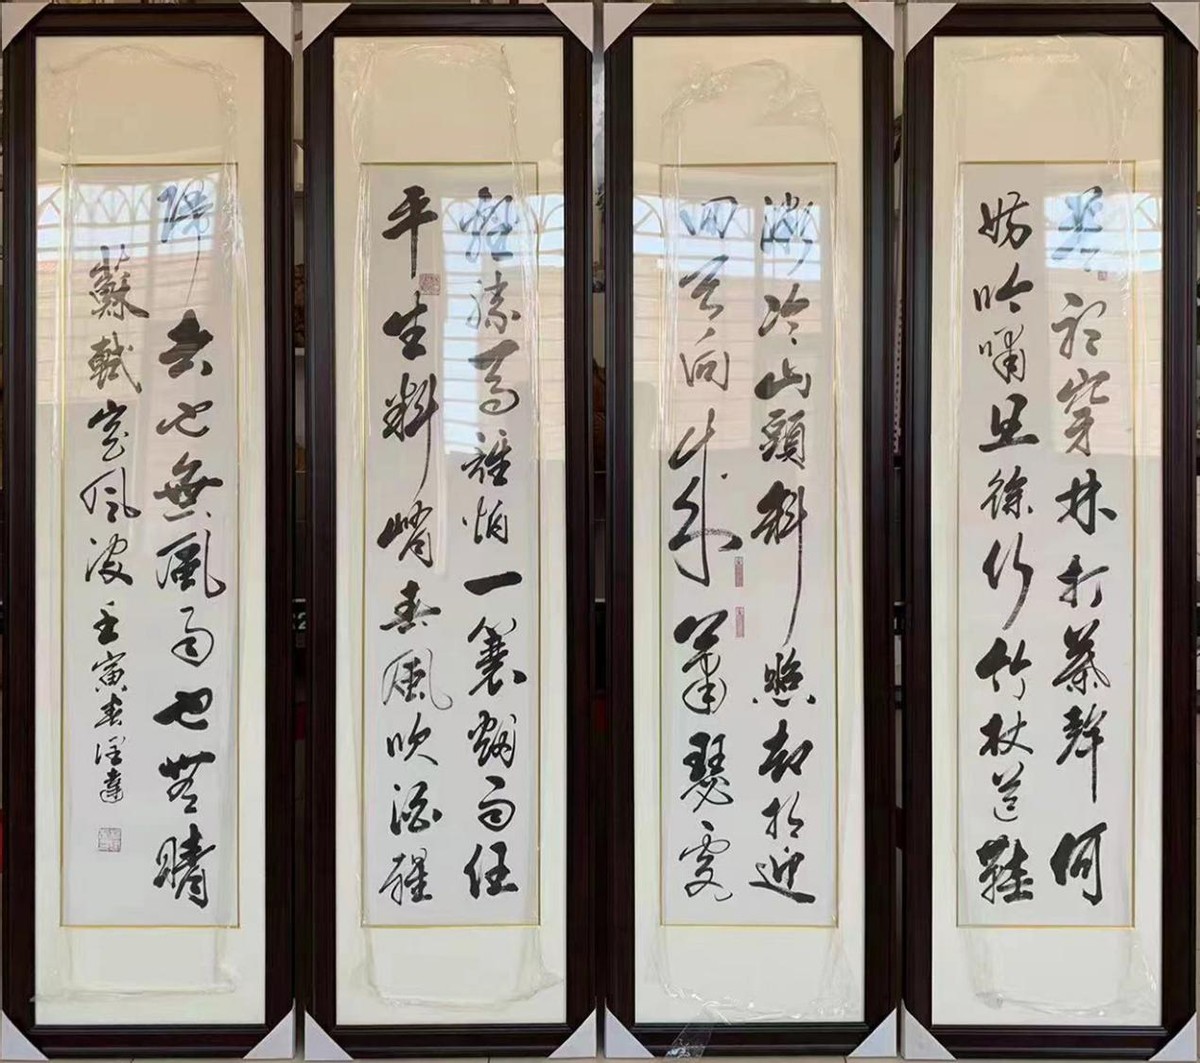 莫聽穿林打葉聲何
妨吟嘯且徐行竹杖芒鞋
微冷山頭斜照却相迎
回首向來蕭瑟處
輕勝馬誰怕一蓑烟雨任
平生料峭春風吹酒醒
歸去也無風雨也無晴
蘇軾定風波壬寅春澤達